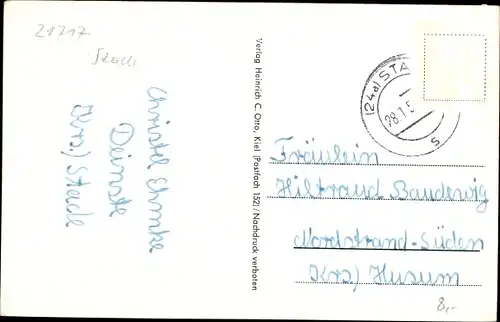 21717
Stade
Christel Ehmke
Deinste
Krs.) Stade
Verlag Heinrich C. Otto, Kiel (Postfach 152) / Nachdruck verboten
(24a) STA
28.1.5
s
Fräulein
Hiltraud Bandewig
Nordstrand-Süden
Krs) Husum
8,-